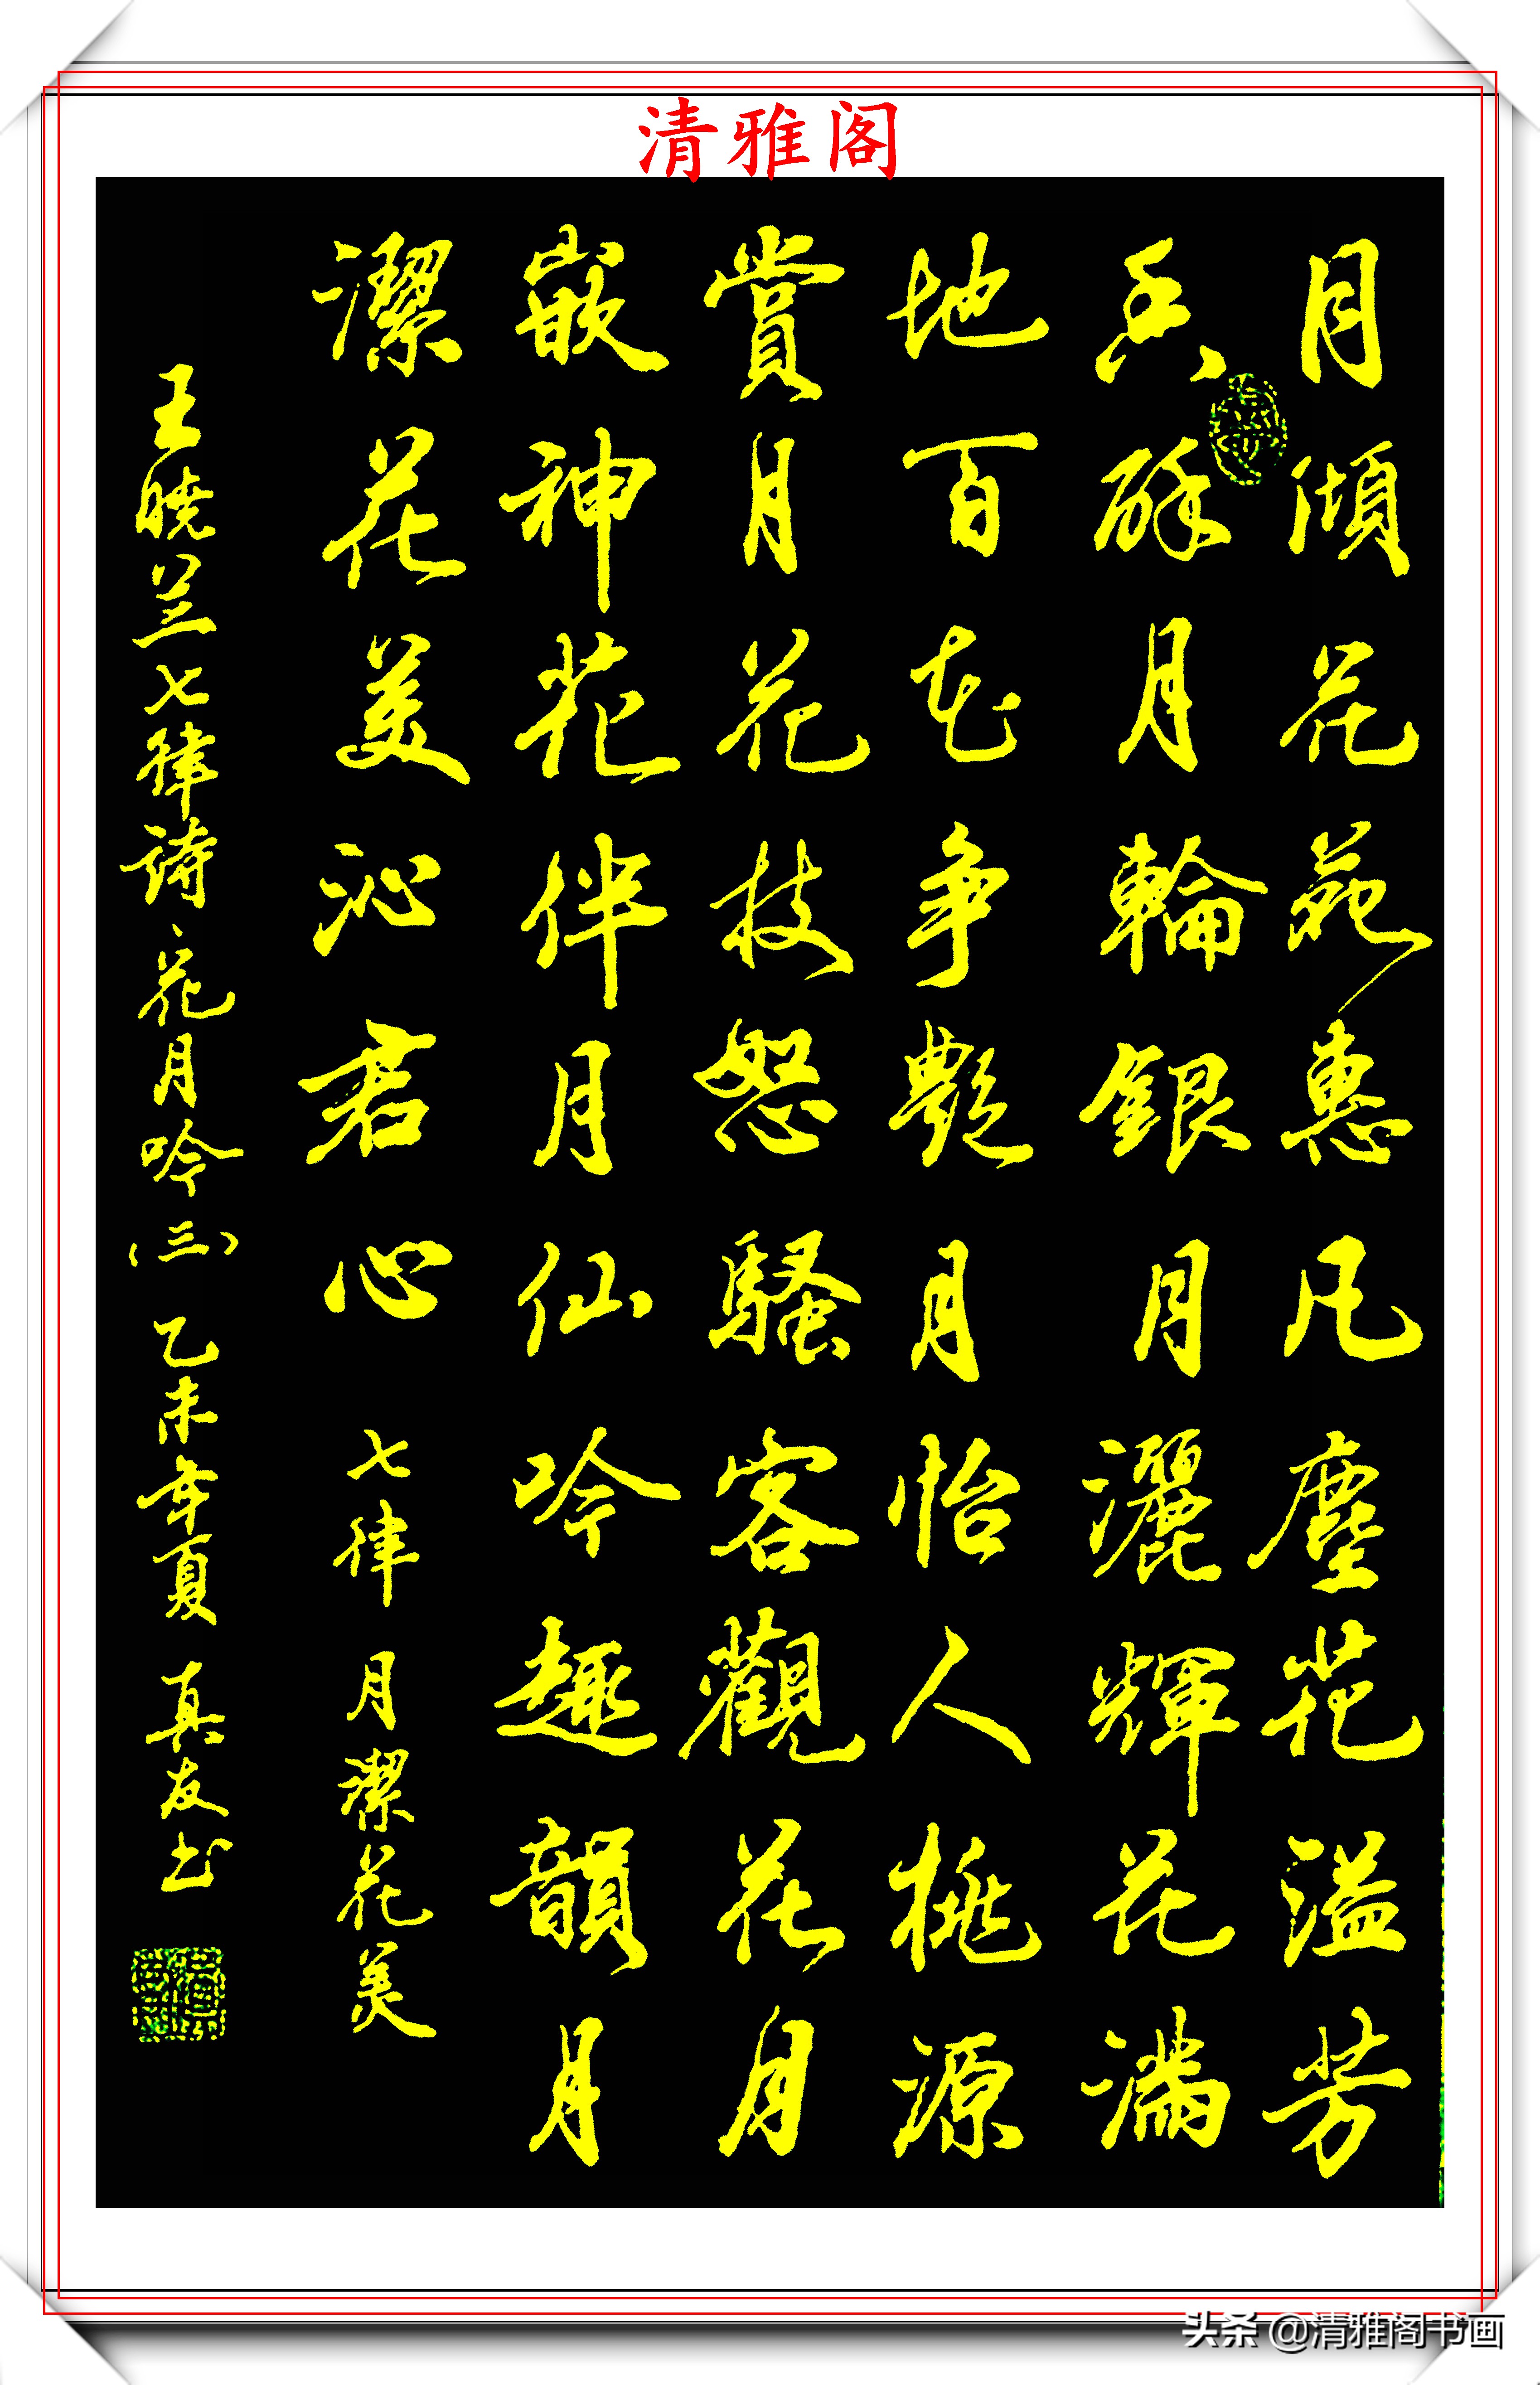 清雅阁
月傾花苑惠凡塵花溢芳
香酥月輪銀月灑輝花滿
地百花争艷月怡人桃源
賞月花枝怒騷客觀花月
嵌神花伴月仙吟趣韻月
潔花美沁君心 七律 月潔花美
王曉兰七律詩、花月吟（三） 乙未年夏 真友书
头条 @清雅阁书画